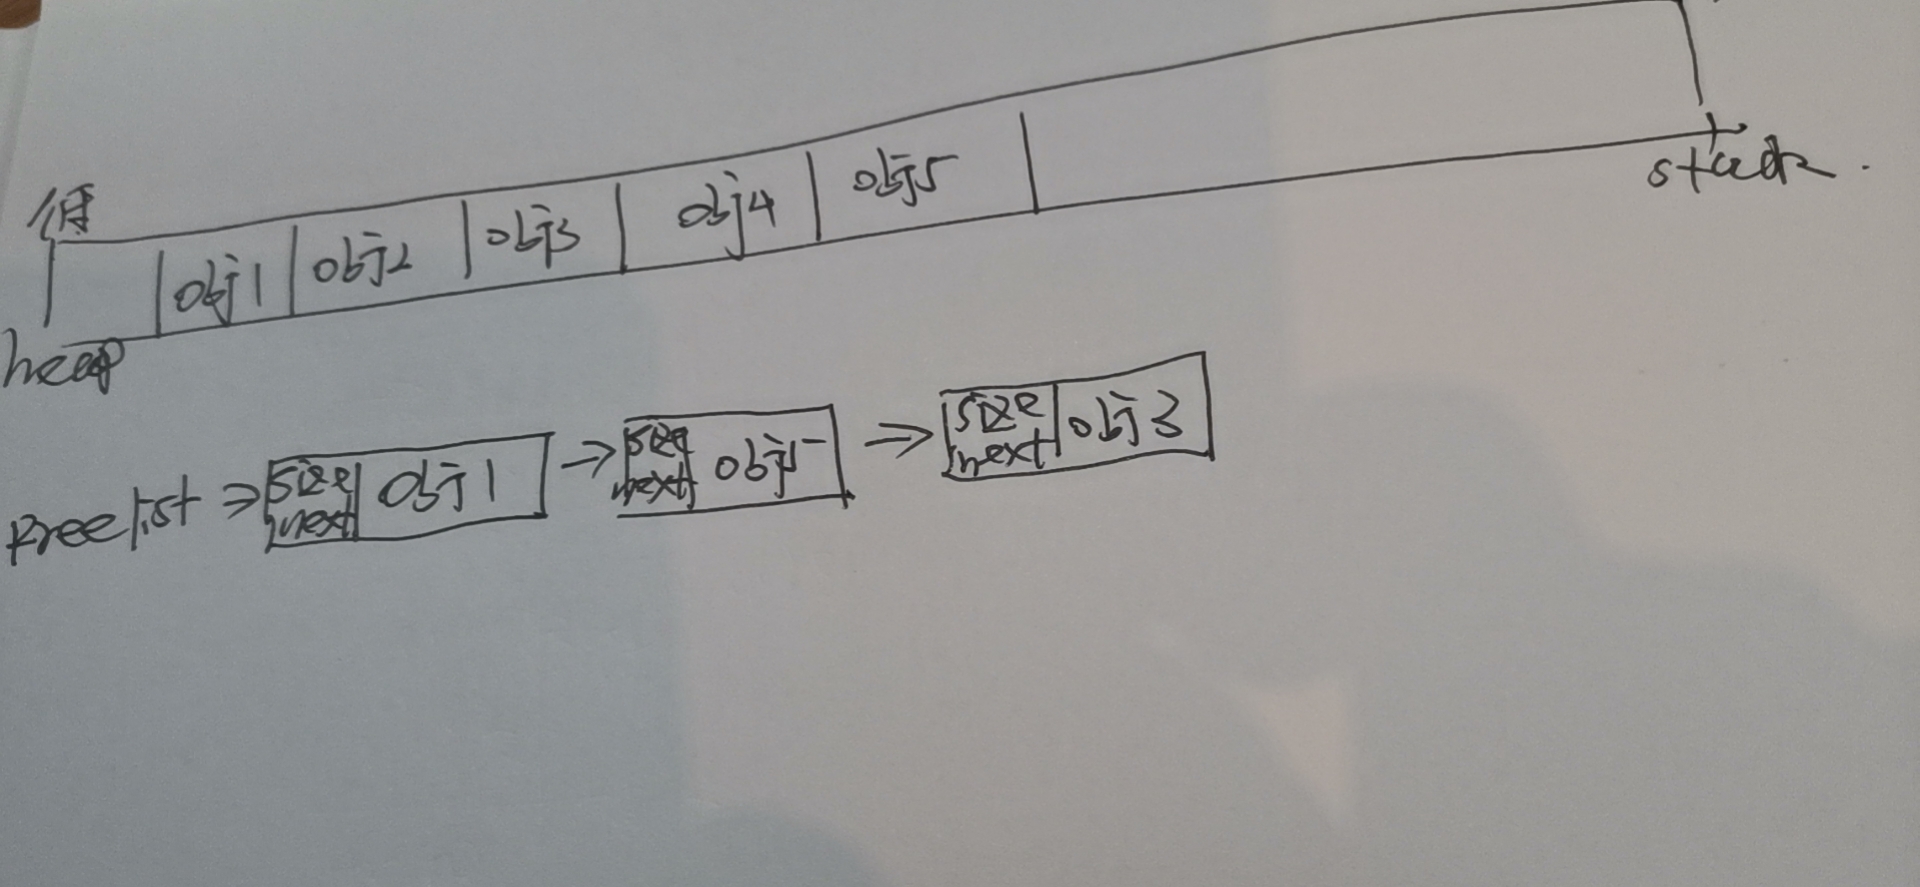 obj1 obj2 obj3 obj4 obj5
stack.
heap
Freelist ⇒ size next obj1 → size next obj5 → size next obj3